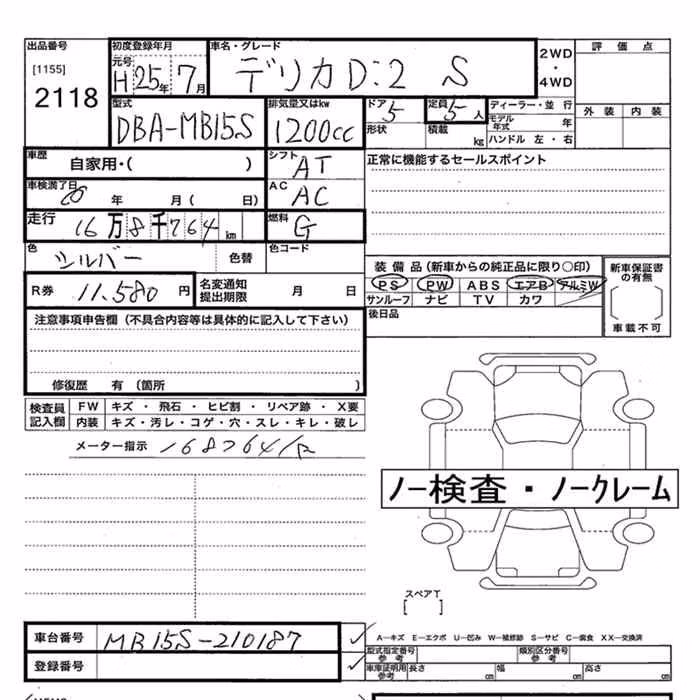 出品番号
[1155]
2118
初度登録年月
元号
H 25年 7月
車名・グレード
デリカD:2 S
2WD
・
4WD
評価点
外装 内装
型式
DBA-MB15S
排気量又はkw
1200cc
ドア
5
形状
定員
5人
積載
kg
ディーラー・並 行
モデル年式 年
ハンドル 左・右
車歴
自家用・( )
シフト
AT
正常に機能するセールスポイント
車検満了日
年 月( 日)
AC
AC
走行
16万8千764km
燃料
G
色
シルバー
色替
色コード
装備品(新車からの純正品に限り○印)
PS PW ABS エアB アルミW
サンルーフ ナビ TV カワ
新車保証書の有無
車載不可
R券 11.580 円
名変通知
提出期限
月 日
後日品
注意事項申告欄(不具合内容等は具体的に記入して下さい)
修復歴 有 〔箇所 〕
検査員
記入欄
FW キズ・飛石・ヒビ割・リペア跡・X要
内装 キズ・汚レ・コゲ・穴・スレ・キレ・破レ
メーター指示 168764
ノー検査・ノークレーム
スペアT
[ ]
車台番号 MB15S-210187
登録番号
A-キズ E-エクボ U-凹み W-補修跡 S-サビ C-腐食 XX-交換済
型式指定番号
参考
類別区分番号
参考
車庫証明用
参考
長さ cm 幅 cm 高さ cm